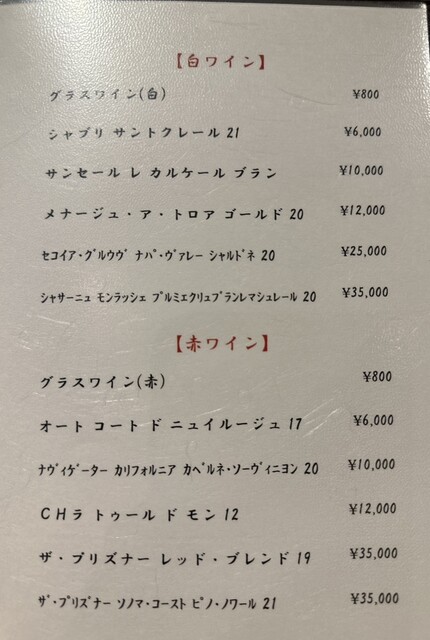 【白ワイン】
グラスワイン(白) ¥800
シャブリ サントクレール 21 ¥6,000
サンセール レ カルケール ブラン ¥10,000
メナージュ・ア・トロア ゴールド 20 ¥12,000
ｾｺｲｱ・ｸﾞﾙｳｳﾞ ﾅﾊﾟ・ｳﾞｧﾚｰ ｼｬﾙﾄﾞﾈ 20 ¥25,000
ｼｬｻｰﾆｭ ﾓﾝﾗｯｼｪ ﾌﾟﾙﾐｴｸﾘｭﾌﾞﾗﾝﾚﾏｼｭﾚｰﾙ 20 ¥35,000
【赤ワイン】
グラスワイン(赤) ¥800
オート コート ド ニュイルージュ 17 ¥6,000
ﾅｳﾞｨｹﾞｰﾀｰ ｶﾘﾌｫﾙﾆｱ ｶﾍﾞﾙﾈ・ｿｰｳﾞｨﾆﾖﾝ 20 ¥10,000
CHラ トゥール ド モン 12 ¥12,000
ザ・プリズナー レッド・ブレンド 19 ¥35,000
ｻﾞ・ﾌﾟﾘｽﾞﾅｰ ｿﾉﾏ・ｺｰｽﾄ ﾋﾟﾉ・ﾉﾜｰﾙ 21 ¥35,000